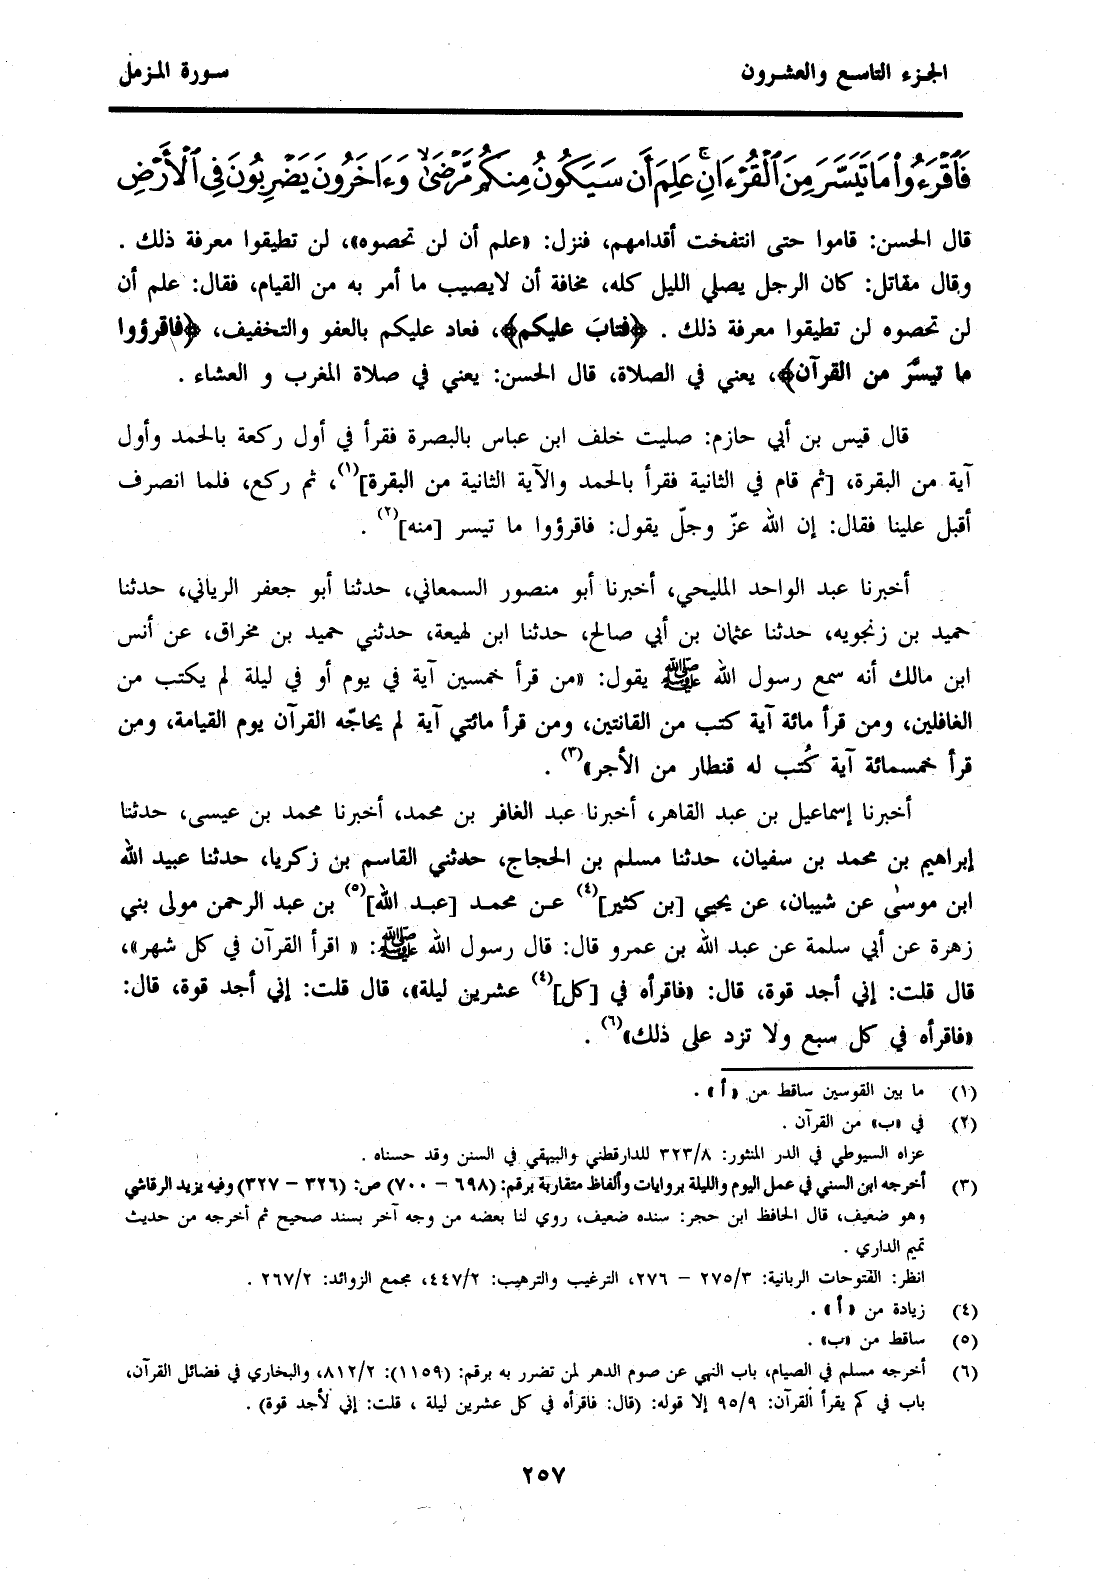 الجزء التاسع والعشرون
سورة المزمل
فَٱقْرَءُوا۟ مَا تَيَسَّرَ مِنَ ٱلْقُرْءَانِ ۚ عَلِمَ أَن سَيَكُونُ مِنكُم مَّرْضَىٰ ۙ وَءَاخَرُونَ يَضْرِبُونَ فِى ٱلْأَرْضِ
قال الحسن: قاموا حتى انتفخت أقدامهم، فنزل: «علم أن لن تحصوه»، لن تطيقوا معرفة ذلك .
وقال مقاتل: كان الرجل يصلي الليل كله، مخافة أن لايصيب ما أمر به من القيام، فقال: علم أن
لن تحصوه لن تطيقوا معرفة ذلك . ﴿فتابَ عليكم﴾، فعاد عليكم بالعفو والتخفيف، ﴿فاقرؤوا
ما تيسَّر من القرآن﴾، يعني في الصلاة، قال الحسن: يعني في صلاة المغرب و العشاء .
قال قيس بن أبي حازم: صليت خلف ابن عباس بالبصرة فقرأ في أول ركعة بالحمد وأول
آية من البقرة، [ثم قام في الثانية فقرأ بالحمد والآية الثانية من البقرة](١)، ثم ركع، فلما انصرف
أقبل علينا فقال: إن الله عزّ وجلّ يقول: فاقرؤوا ما تيسر [منه](٢) .
أخبرنا عبد الواحد المليحي، أخبرنا أبو منصور السمعاني، حدثنا أبو جعفر الرياني، حدثنا
حميد بن زنجويه، حدثنا عثمان بن أبي صالح، حدثنا ابن لهيعة، حدثني حميد بن مخراق، عن أنس
ابن مالك أنه سمع رسول الله ﷺ يقول: «من قرأ خمسين آية في يوم أو في ليلة لم يكتب من
الغافلين، ومن قرأ مائة آية كتب من القانتين، ومن قرأ مائتي آية لم يحاجّه القرآن يوم القيامة، ومن
قرأ خمسمائة آية كُتب له قنطار من الأجر»(٣) .
أخبرنا إسماعيل بن عبد القاهر، أخبرنا عبد الغافر بن محمد، أخبرنا محمد بن عيسى، حدثنا
إبراهيم بن محمد بن سفيان، حدثنا مسلم بن الحجاج، حدثني القاسم بن زكريا، حدثنا عبيد الله
ابن موسىٰ عن شيبان، عن يحيي [بن كثير](٤) عن محمد [عبد الله](٥) بن عبد الرحمن مولى بني
زهرة عن أبي سلمة عن عبد الله بن عمرو قال: قال رسول الله ﷺ: « اقرأ القرآن في كل شهر»،
قال قلت: إني أجد قوة، قال: «فاقرأه في [كل](٤) عشرين ليلة»، قال قلت: إني أجد قوة، قال:
«فاقرأه في كل سبع ولا تزد على ذلك»(٦) .
(١) ما بين القوسين ساقط من «أ» .
(٢) في «ب» من القرآن .
عزاه السيوطي في الدر المنثور: ٣٢٣/٨ للدارقطني والبيهقي في السنن وقد حسناه .
(٣) أخرجه ابن السني في عمل اليوم والليلة بروايات وألفاظ متقاربة برقم: (٦٩٨ – ٧٠٠) ص: (٣٢٦ – ٣٢٧) وفيه يزيد الرقاشي
وهو ضعيف، قال الحافظ ابن حجر: سنده ضعيف، روي لنا بعضه من وجه آخر بسند صحيح ثم أخرجه من حديث
تميم الداري .
انظر: الفتوحات الربانية: ٢٧٥/٣ – ٢٧٦، الترغيب والترهيب: ٤٤٧/٢، مجمع الزوائد: ٢٦٧/٢ .
(٤) زيادة من «أ» .
(٥) ساقط من «ب» .
(٦) أخرجه مسلم في الصيام، باب النهي عن صوم الدهر لمن تضرر به برقم: (١١٥٩): ٨١٢/٢، والبخاري في فضائل القرآن،
باب في كم يقرأ القرآن: ٩٥/٩ إلا قوله: (قال: فاقرأه في كل عشرين ليلة ، قلت: إني لأجد قوة) .
٢٥٧